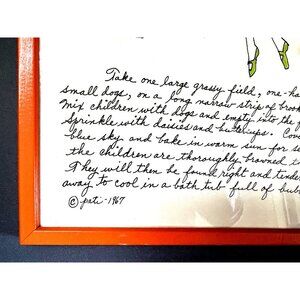 Take one large grassy field, one-ha
small dogs, on a long narrow strip of broo
Mix children with dogs and empty into the f
Sprinkle with daisies and buttercups. Cov
blue sky and bake in warm sun for se
the children are thoroughly browned t
They will then be found right and tende
away to cool in a bath tub full of bub
© pati-1967